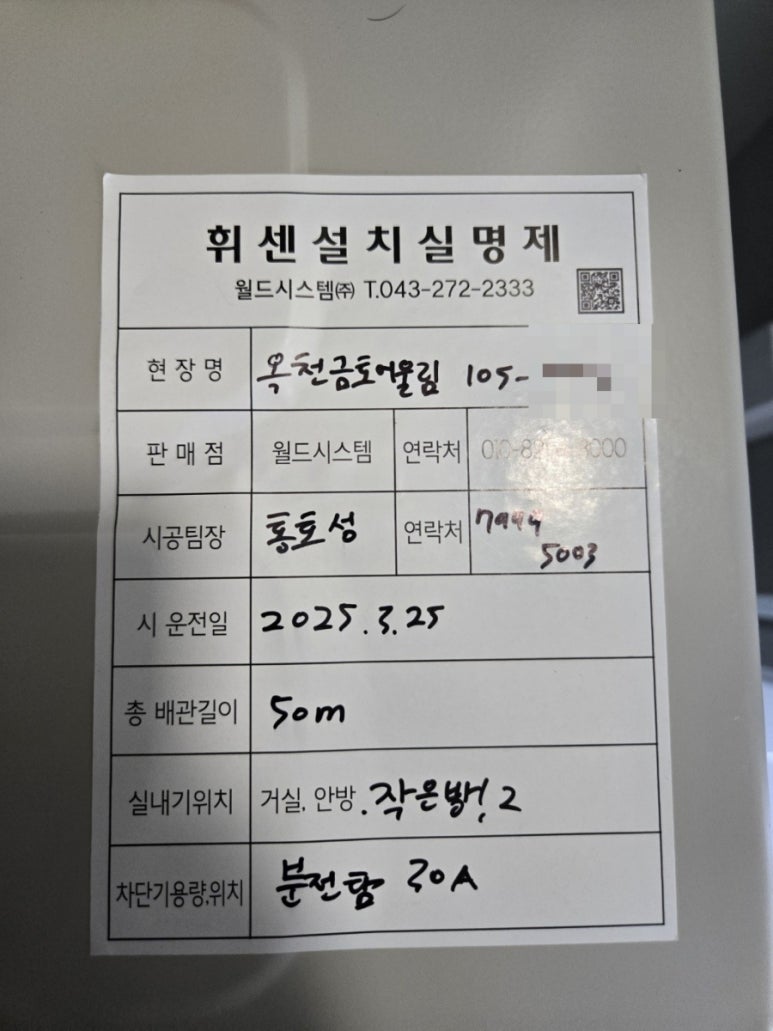 휘센설치실명제
월드시스템㈜ T.043-272-2333
현장명 옥천금호어울림 105-
판매점 월드시스템 연락처
시공팀장 연락처
5003
시 운전일 2025.3.25
총 배관길이 50m
실내기위치 거실, 안방. 작은방1, 2
차단기용량,위치 분전함 30A